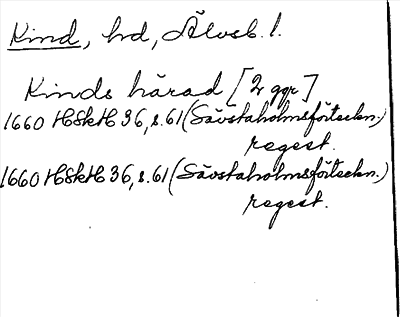 Kind, hd, Älvsb. l.
Kinds härad [2 ggr]
1660 HSkH 36, s. 61 (Sävstaholmsförteckn.)
regest.
1660 HSkH 36, s. 61 (Sävstaholmsförteckn.)
regest.